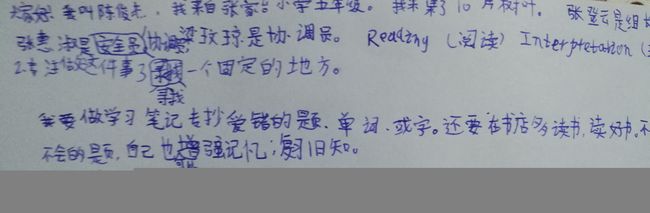 大家好 我叫陈俊杰，我来自张家台小学五年级。我采集了10片树叶。张登云是组长
张惠淑是安全员，协调梁玫琼是协调员。Reading (阅读) Interpretation (
2.专注做这件事了 寻找 一个固定的地方。
寻找
我要做学习笔记去抄爱错的题、单词、或字。还要在书店多读书,读好书。不
不会的题，自己也增强记忆；复习旧知。